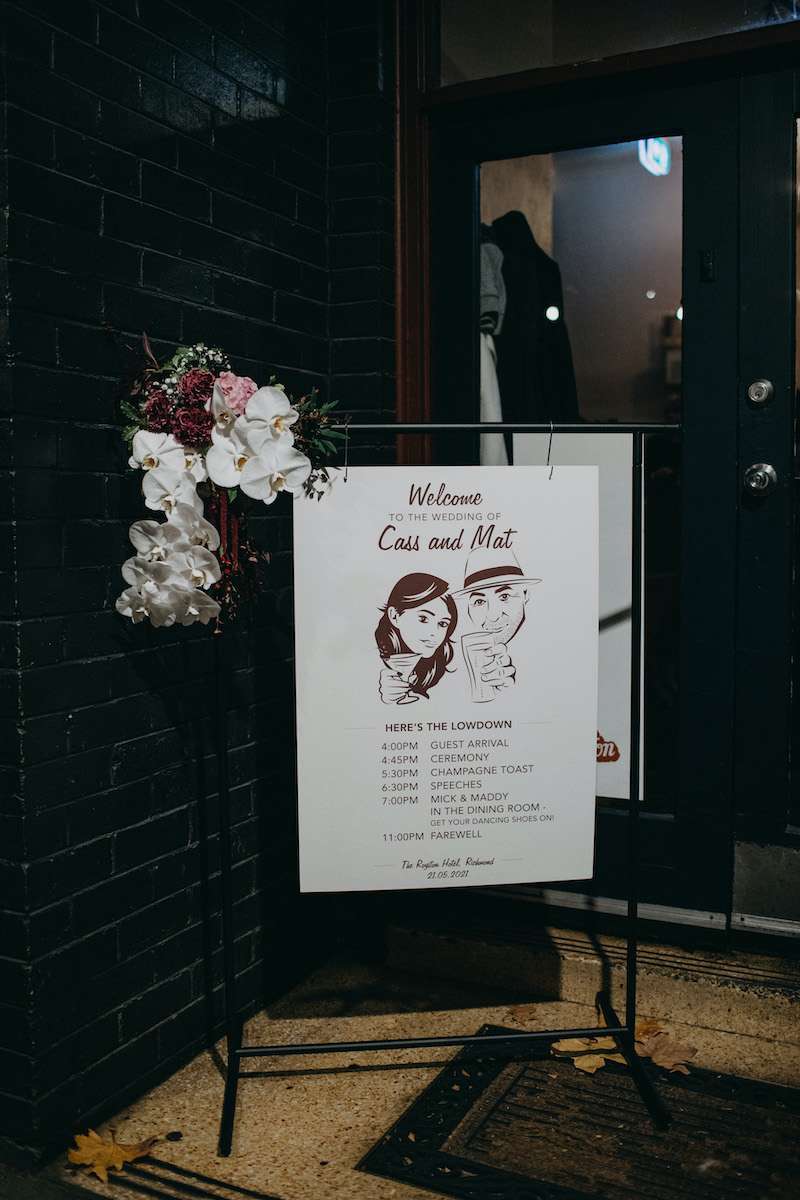 Welcome
TO THE WEDDING OF
Cass and Mat
HERE'S THE LOWDOWN
4:00PM GUEST ARRIVAL
4:45PM CEREMONY
5:30PM CHAMPAGNE TOAST
6:30PM SPEECHES
7:00PM MICK & MADDY
IN THE DINING ROOM -
GET YOUR DANCING SHOES ON!
11:00PM FAREWELL
The Royston Hotel, Richmond
21.05.2021